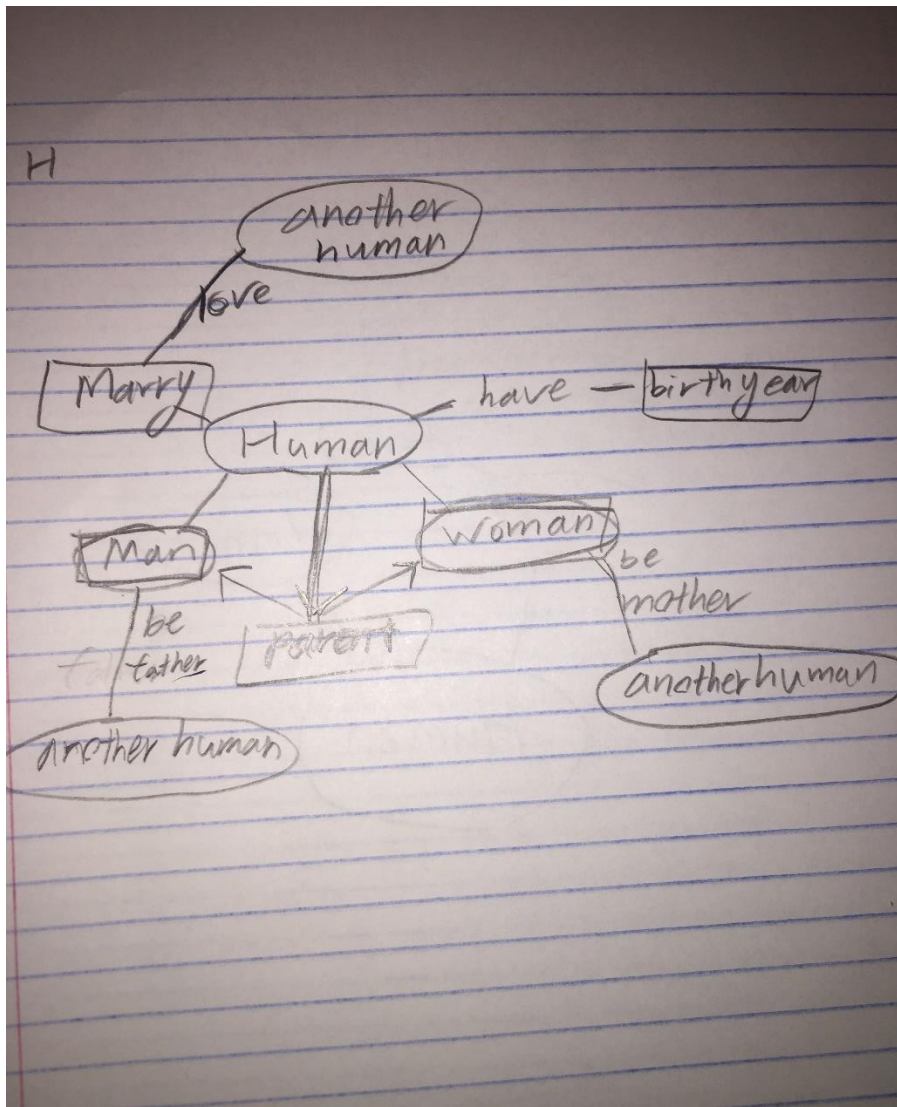 H
another
human
love
Marry
have
birthyear
Human
Man
Woman
be
mother
be
father
Parent
another human
another human